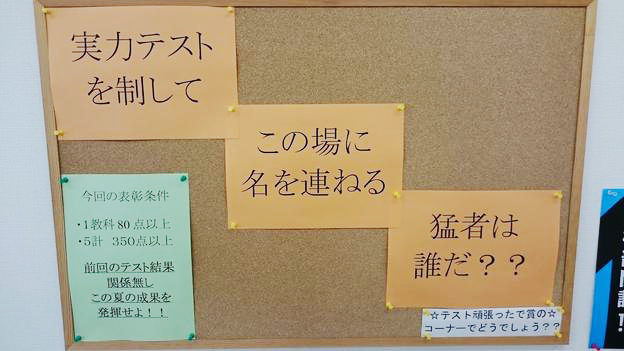 実力テスト
を制して
この場に
名を連ねる
猛者は
誰だ？？
今回の表彰条件
・1教科80点以上
・5計 350点以上
前回のテスト結果
関係無し
この夏の成果を
発揮せよ！！
☆テスト頑張ったで賞の☆
コーナーでどうでしょう？？